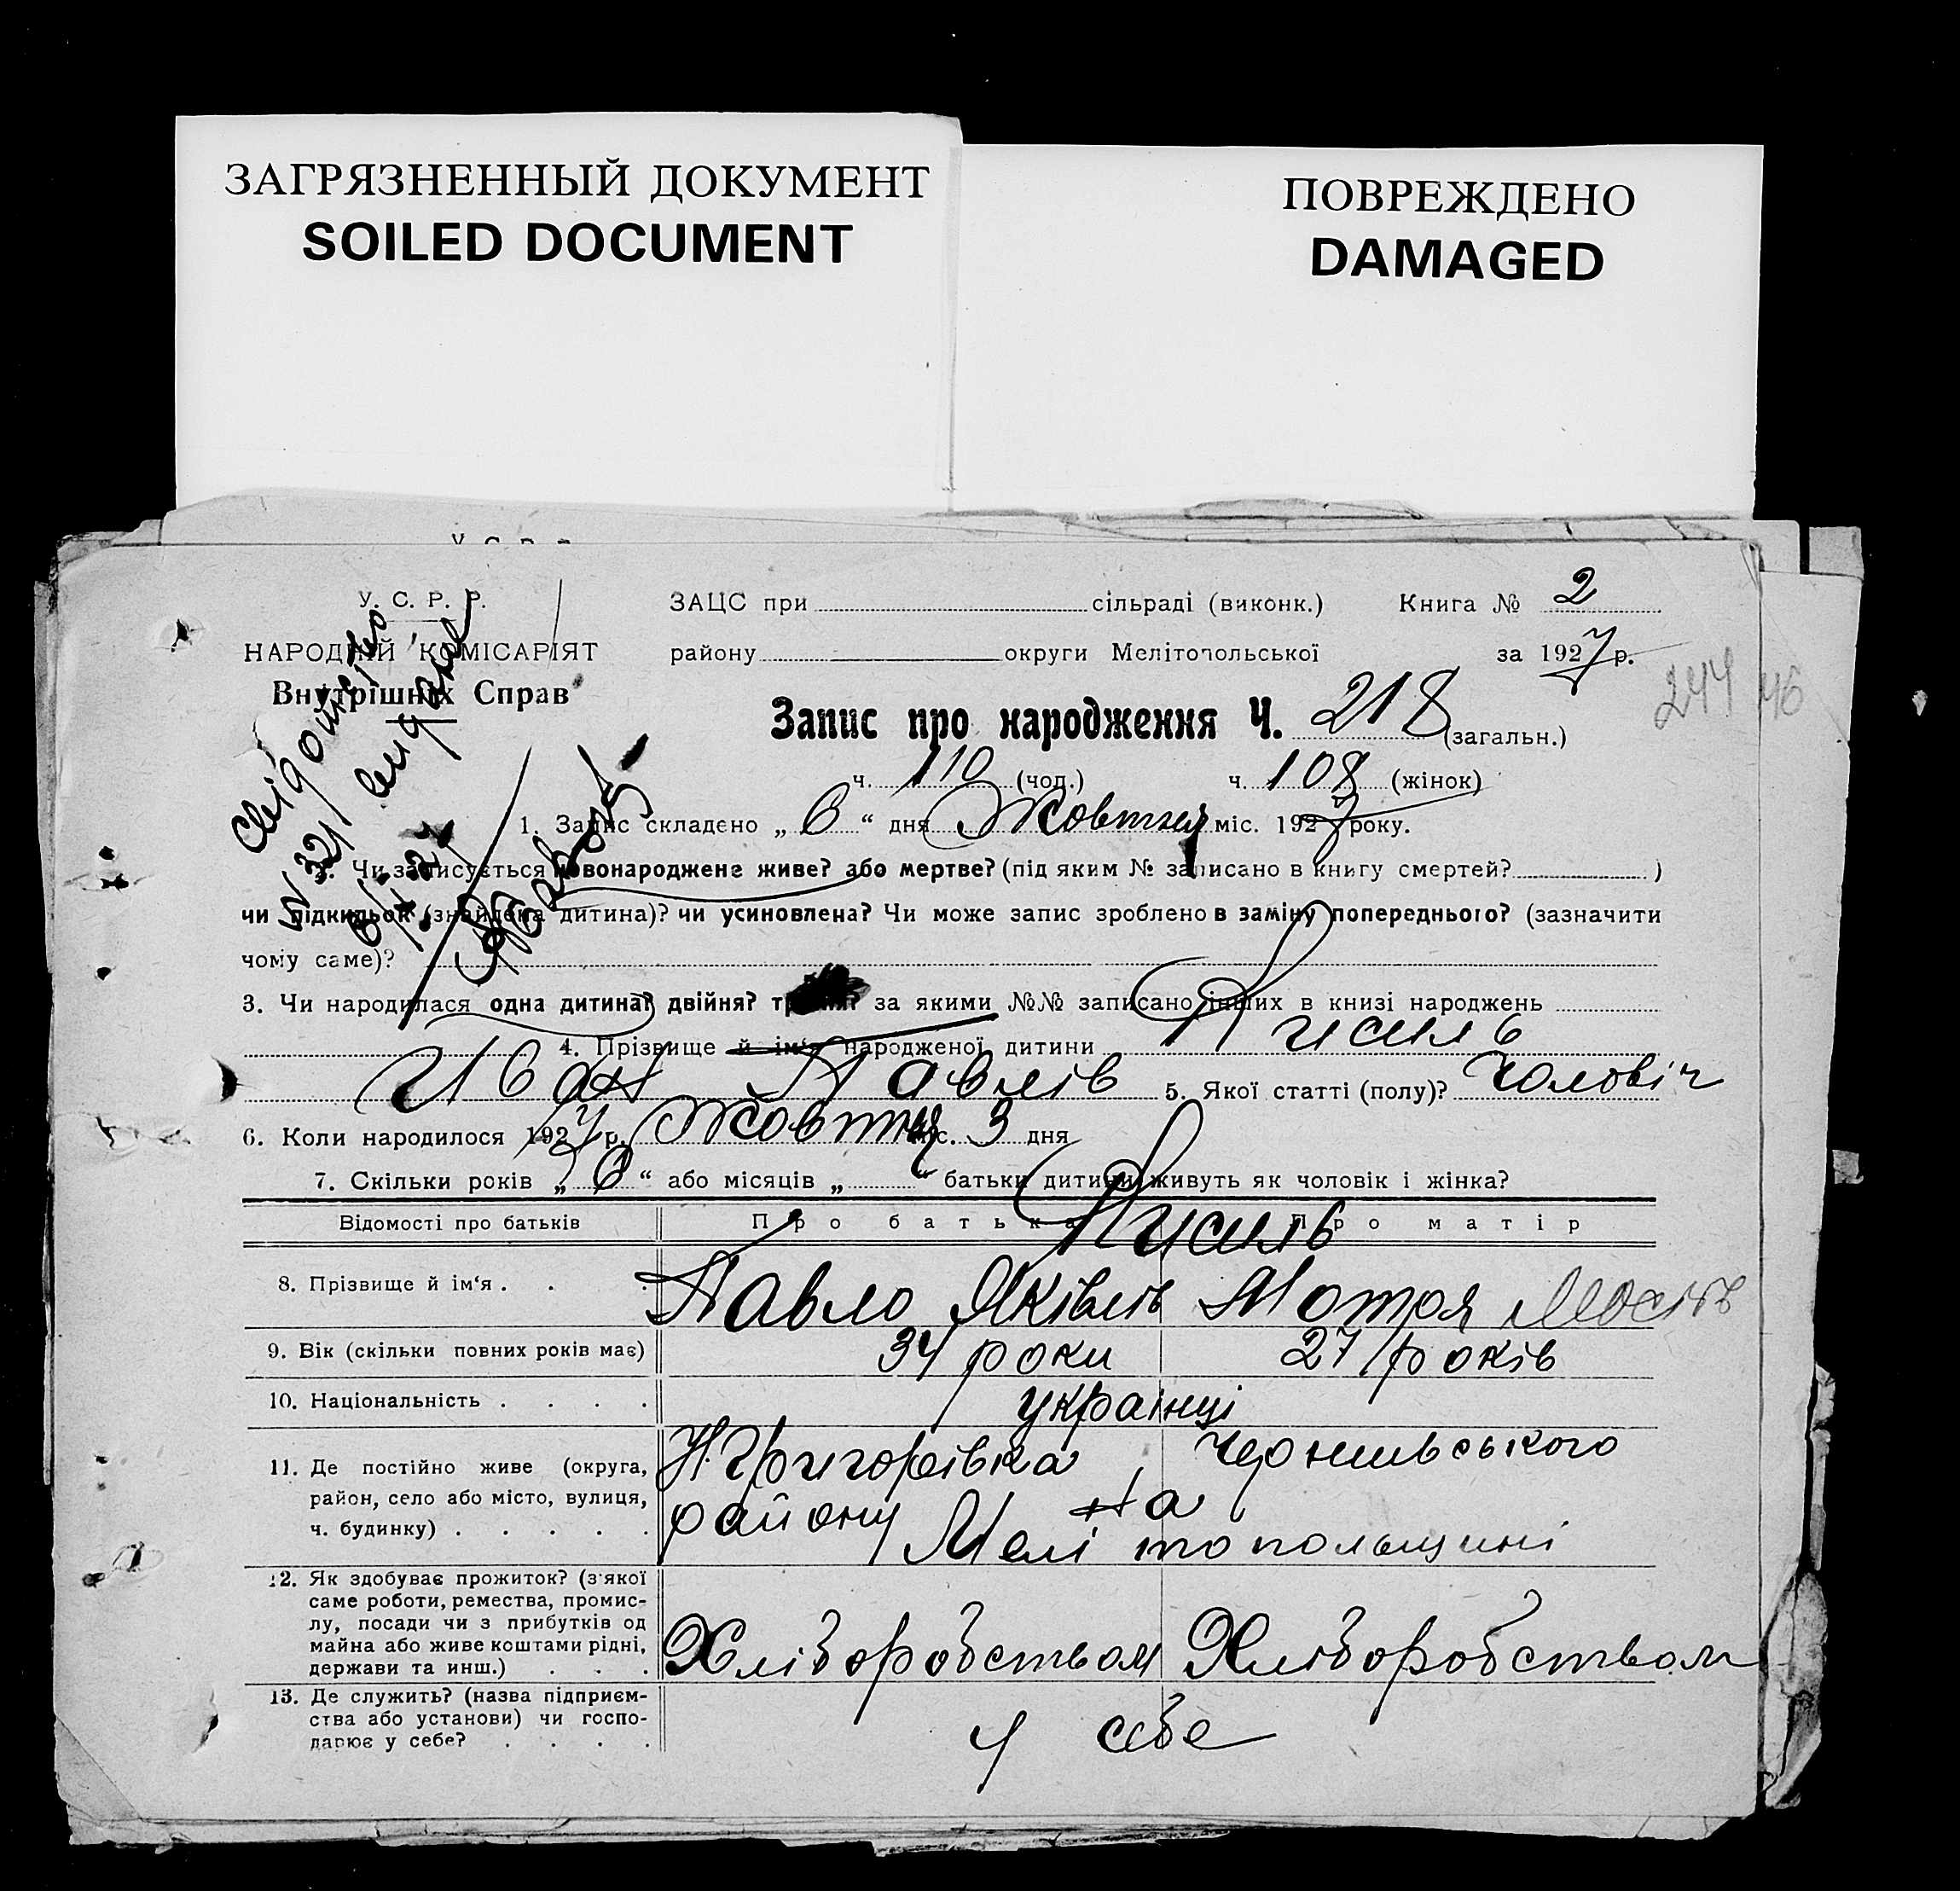 ЗАГРЯЗНЕННЫЙ ДОКУМЕНТ
SOILED DOCUMENT
ПОВРЕЖДЕНО
DAMAGED
У. С. Р. Р.
НАРОДНІЙ КОМІСАРІЯТ
Внутрішніх Справ
ЗАЦС при сільраді (виконк.) Книга № 2
району округи Мелітопольської за 1927 р.
244 46
Запис про народження Ч. 218 (загальн.)
ч. 110 (чол.) ч. 108 (жінок)
1. Запис складено „ 6 “ дня Жовтня міс. 1927 року.
2. Чи записується новонароджене живе? або мертве? (під яким № записано в книгу смертей? )
чи підкидьок (знайдена дитина)? чи усиновлена? Чи може запис зроблено в заміну попереднього? (зазначити
чому саме)?
3. Чи народилася одна дитина? двійня? трійня? за якими №№ записано інших в книзі народжень
4. Прізвище й ім‘я народженої дитини Кисиль
Иван Павлів 5. Якої статті (полу)? Чоловіч
6. Коли народилося 1927 р. Жовтня міс. 3 дня
7. Скільки років „ 6 “ або місяців „ “ батьки дитини живуть як чоловік і жінка?
Відомості про батьків Про батька Про матір
Кисиль
8. Прізвище й ім‘я . . . Павло Яківлів Мотря
9. Вік (скільки повних років має) 34 роки 27 років
10. Національність . . . . українці
11. Де постійно живе (округа,
район, село або місто, вулиця,
ч. будинку) . . . . .
Н. Григорівка Чернигівського
району на
Мелітопольщині
12. Як здобуває прожиток? (з'якої
саме роботи, ремества, промис-
лу, посади чи з прибутків од
майна або живе коштами рідні,
держави та инш.) . . .
Хліборобством Хліборобством
13. Де служить? (назва підприєм-
ства або установи) чи госпо-
дарює у себе? . . . .
У себе